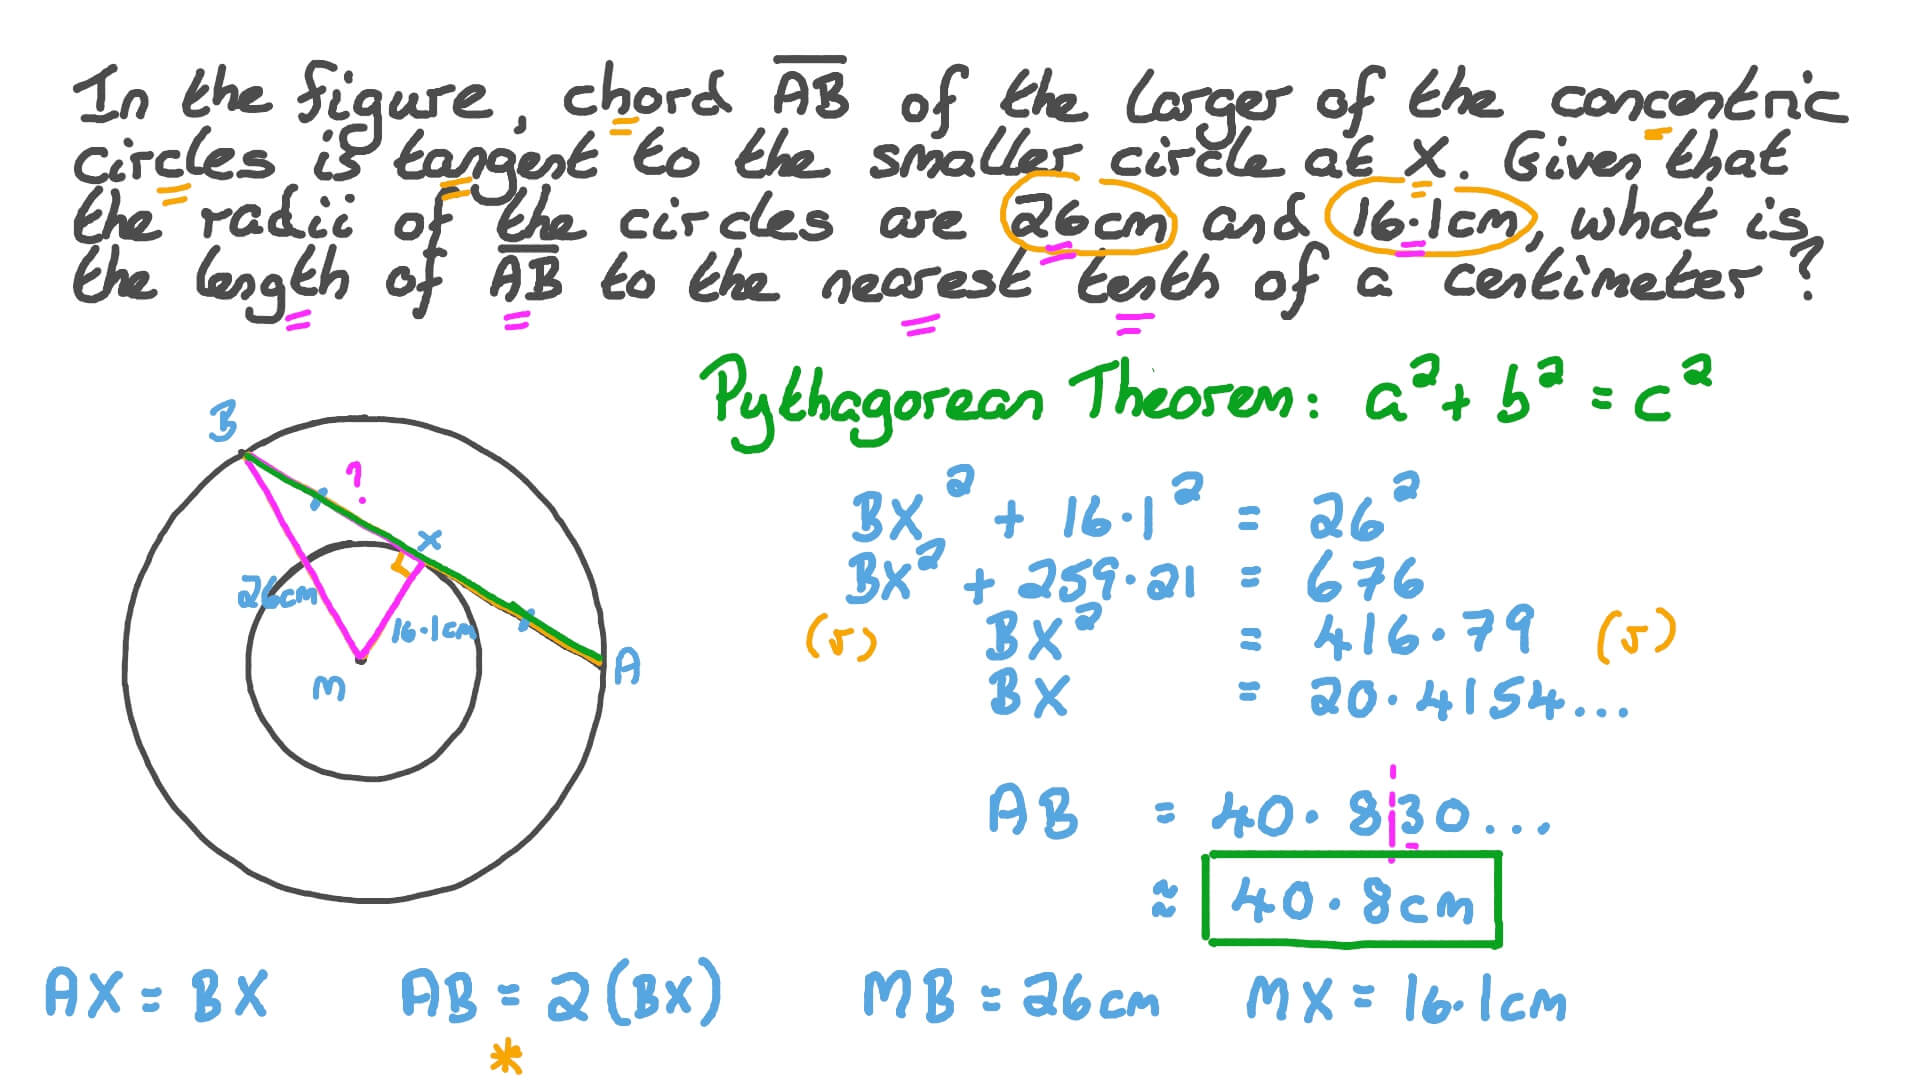 In the figure, chord AB of the larger of the concentric
circles is tangent to the smaller circle at X. Given that
the radii of the circles are 26cm and 16.1cm, what is
the length of AB to the nearest tenth of a centimeter?
Pythagorean Theorem: a² + b² = c²
B
?
X
26cm
16.1cm
M
A
BX² + 16.1² = 26²
BX² + 259.21 = 676
(√) BX² = 416.79 (√)
BX = 20.4154...
AB = 40.830...
≈ 40.8cm
AX = BX AB = 2(BX) MB = 26cm MX = 16.1cm
*